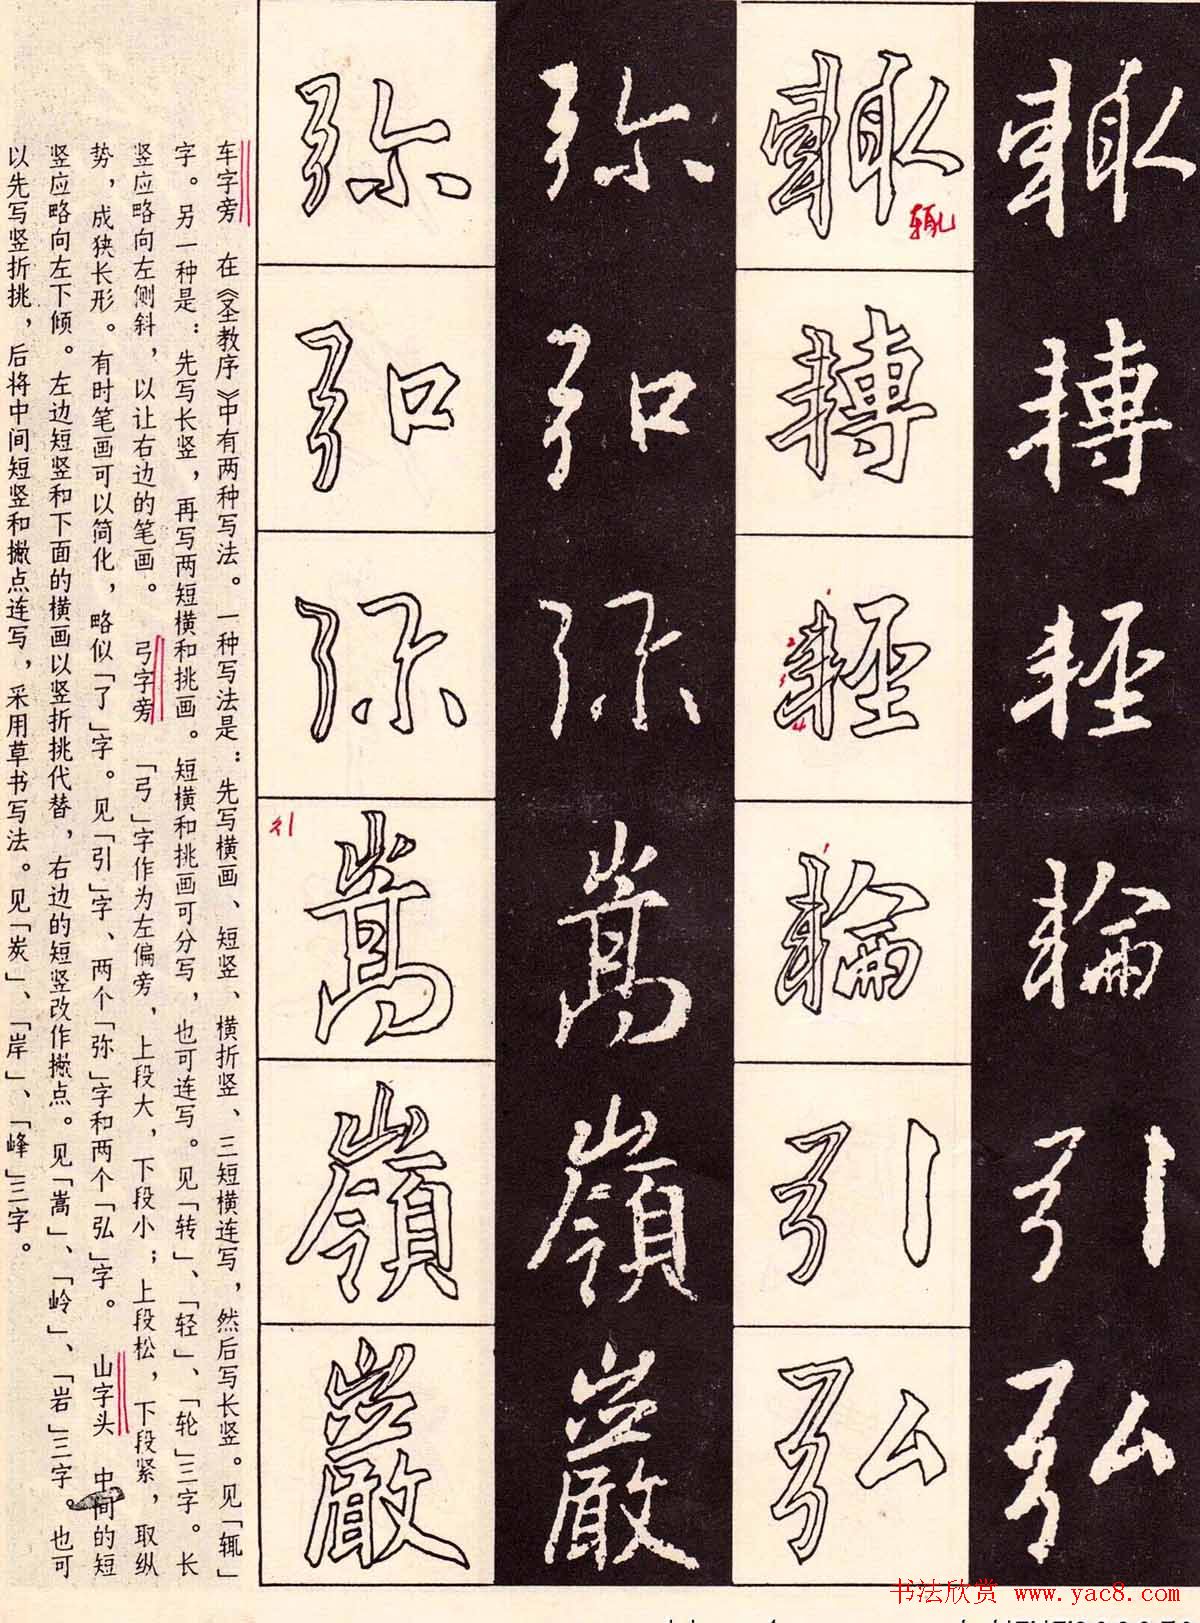 輒
轉
輕
輪
引
弘
弥
弘
弥
嵩
嶺
巖
辄
引
1
2
3
4
1
车字旁　在《圣教序》中有两种写法。一种写法是：先写横画、短竖、横折竖、三短横连写，然后写长竖。见「辄」
字。另一种是：先写长竖，再写两短横和挑画。短横和挑画可分写，也可连写。见「转」、「轻」、「轮」三字。长
竖应略向左侧斜，以让右边的笔画。　弓字旁　「弓」字作为左偏旁，上段大，下段小；上段松，下段紧，取纵
势，成狭长形。有时笔画可以简化，略似「了」字。见「引」字、两个「弥」字和两个「弘」字。　山字头　中间的短
竖应略向左下倾。左边短竖和下面的横画以竖折挑代替，右边的短竖改作撇点。见「嵩」、「岭」、「岩」三字。也可
以先写竖折挑，后将中间短竖和撇点连写，采用草书写法。见「炭」、「岸」、「峰」三字。
书法欣赏 www.yac8.com